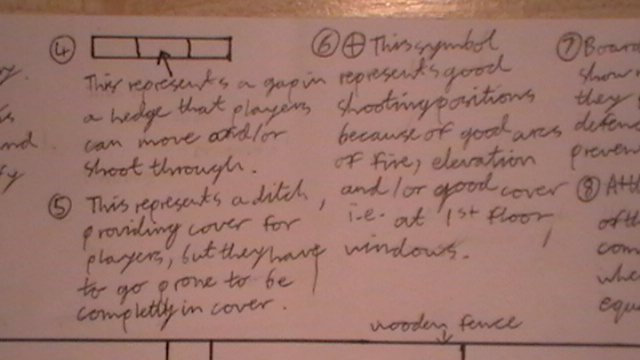 ④
This represents a gap in
a hedge that players
can move and/or
shoot through.
⑤ This represents a ditch,
providing cover for
players, but they have
to go prone to be
completly in cover.
⑥ ⊕ This symbol
represents good
shooting positions
because of good arcs
of fire, elevation
and/or good cover
i.e. at 1st floor
windows.
⑦ Boar
show
they
defen
preven
⑧ Att
of th
com
whe
equi
wooden fence